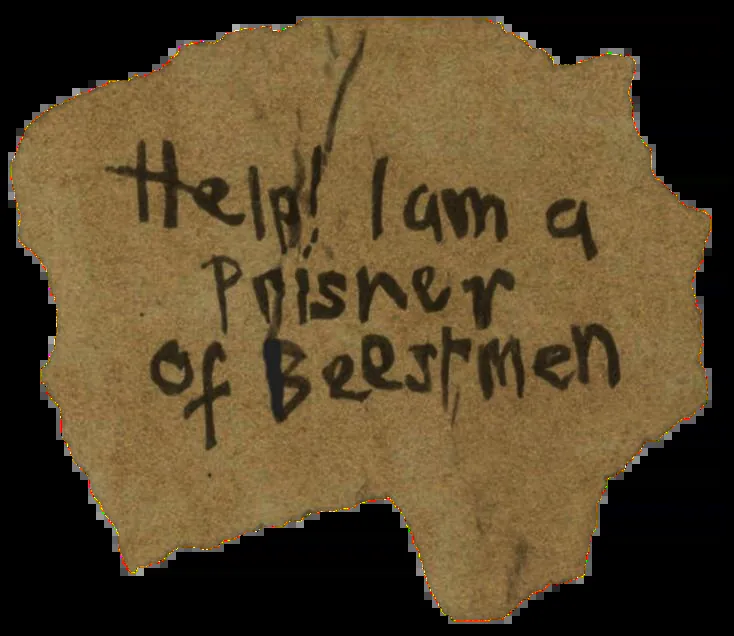 Help! I am a
Prisner
of Beestmen